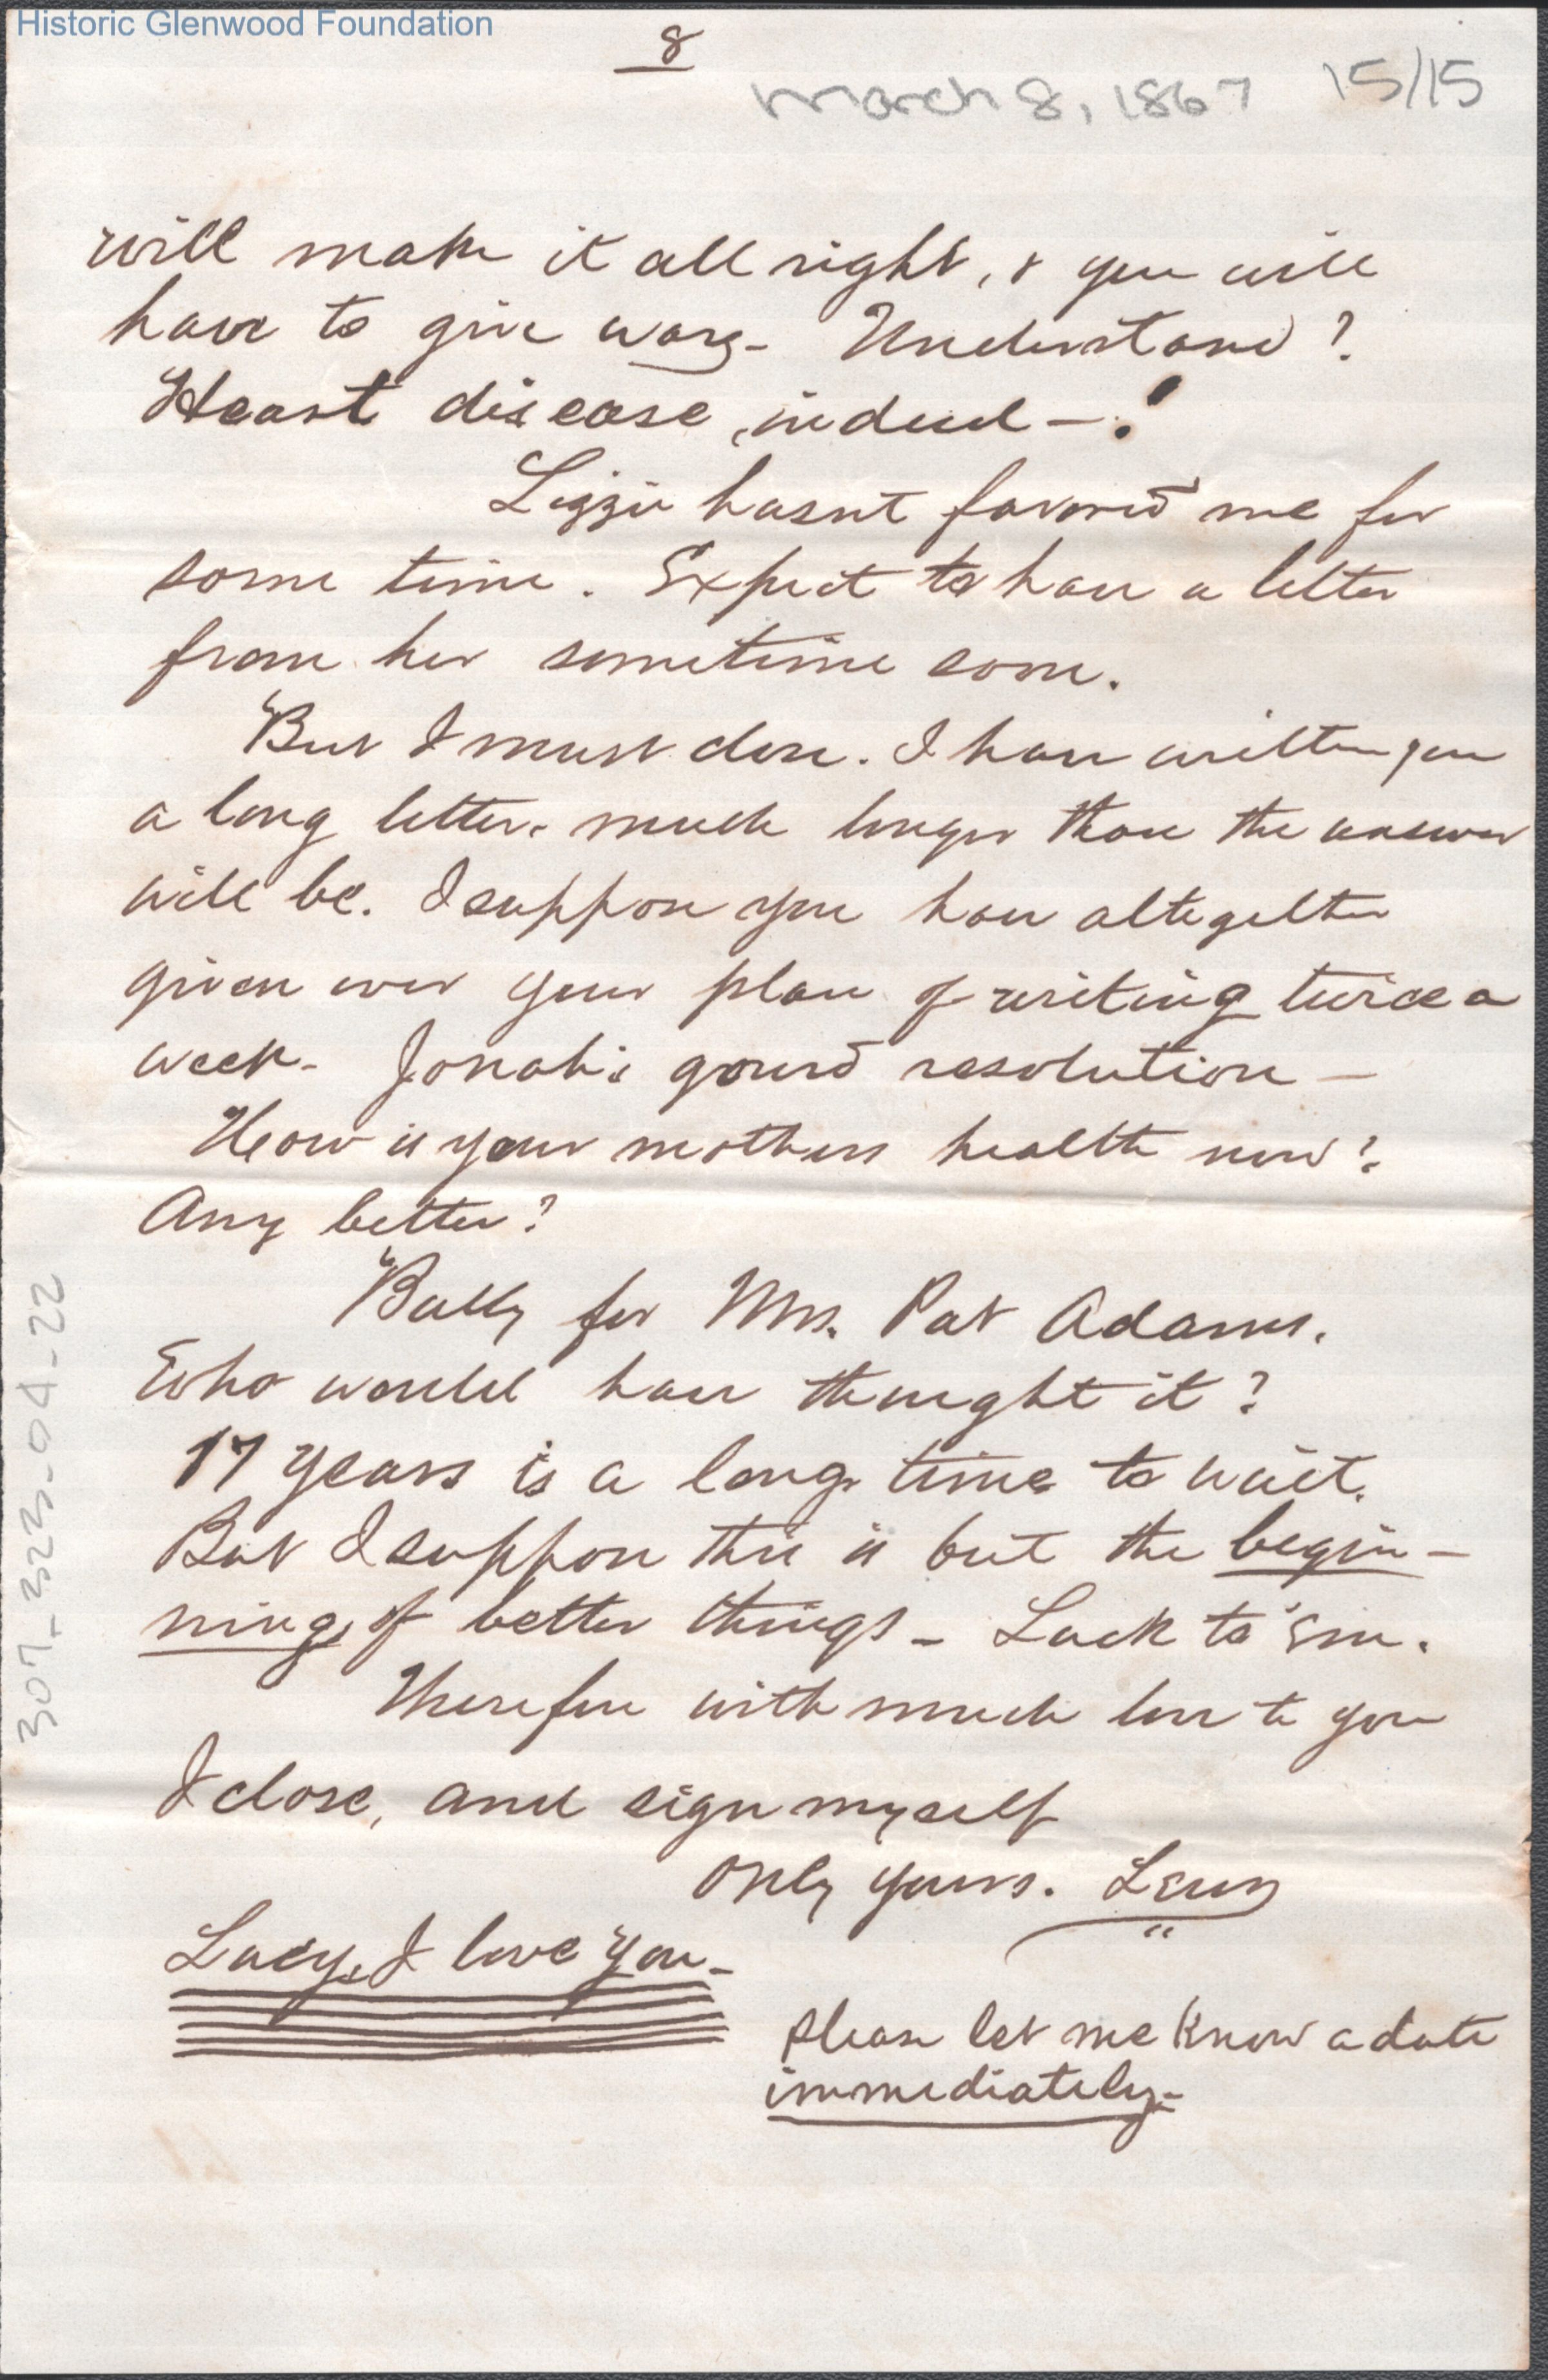 Historic Glenwood Foundation
8
March 8, 1867 15/15
will make it all right, & you will
have to give way- Understand?
Heart disease, indeed -!
Lizzie hasnt favored me for
some time. Expect to have a letter
from her sometime soon.
But I must close. I have written you
a long letter. much longer than the answer
will be. I suppose you have altogether
given over your plan of writing twice a
week- Jonah's gourd resolution -
How is your mothers health now?
Any better?
Bully for Mrs. Pat Adams.
Who would have thought it?
17 years is a long time to wait.
But I suppose this is but the begin-
ning, of better things - Luck to 'em.
Therefore with much love to you
I close, and sign myself
Only yours.
Lucy, I love you-
Please let me know a date
immediately-
307-323-04-22